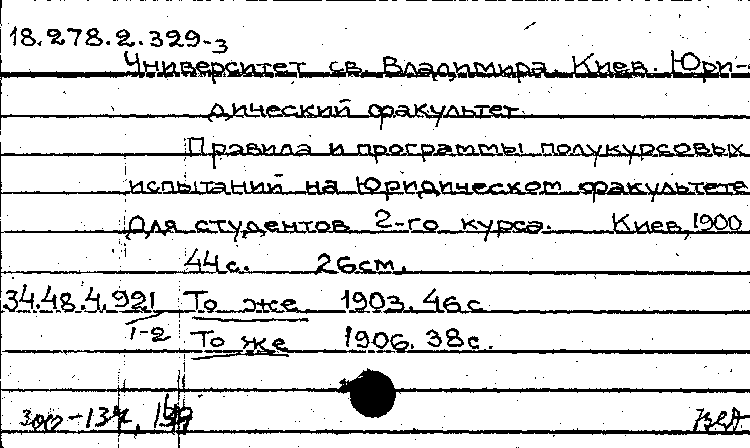 18.278.2.329-3
Университет св. Владимира. Киев. Юри-
дический факультет.
Правила и программы полукурсовых
испытаний на Юридическом факультете
для студентов 2-го курса. Киев, 1900
44с. 26см.
34.48.4.921 То же 1903. 46с
1-2 То же 1906. 38с.
300-137,